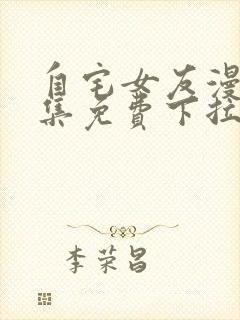 自宅女友漫
集免费下拉
李荣昌